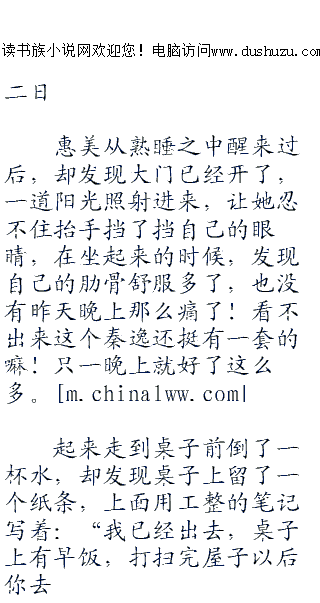 读书族小说网欢迎您！电脑访问www.dushuzu.com
二日
惠美从熟睡之中醒来过
后，却发现大门已经开了，
一道阳光照射进来，让她忍
不住抬手挡了挡自己的眼
睛，在坐起来的时候，发现
自己的肋骨舒服多了，也没
有昨天晚上那么痛了！看不
出来这个秦逸还挺有一套的
嘛！只一晚上就好了这么
多。[m.china1ww.com|
起来走到桌子前倒了一
杯水，却发现桌子上留了一
个纸条，上面用工整的笔记
写着：“我已经出去，桌子
上有早饭，打扫完屋子以后
你去